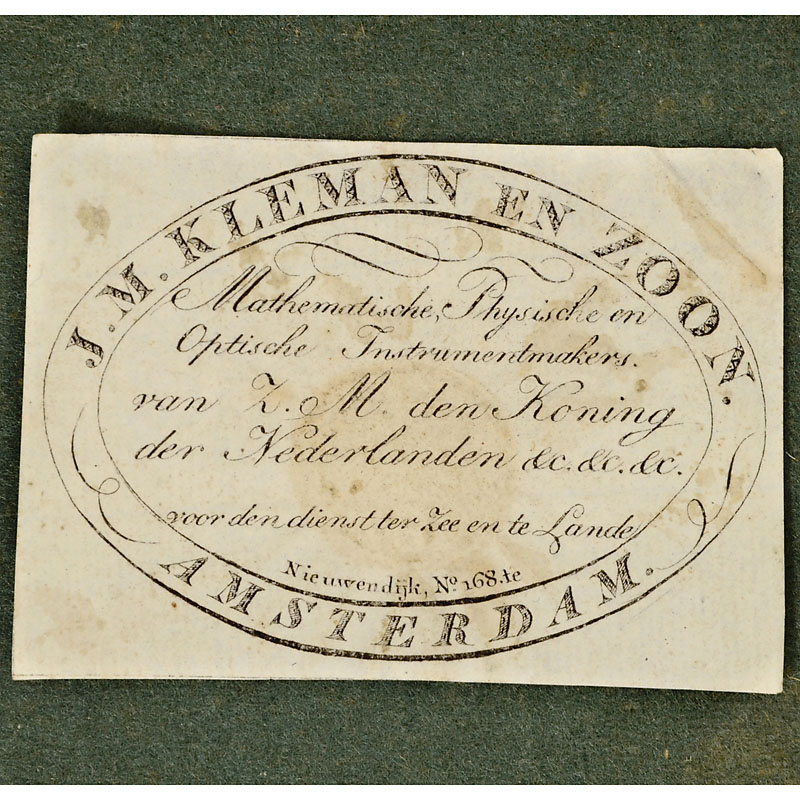 J. M. KLEMAN EN ZOON.
Mathematische, Physische en
Optische Instrumentmakers.
van Z. M. den Koning
der Nederlanden &c. &c. &c.
voor den dienst ter Zee en te Lande
Nieuwendijk, No. 168. te
AMSTERDAM.